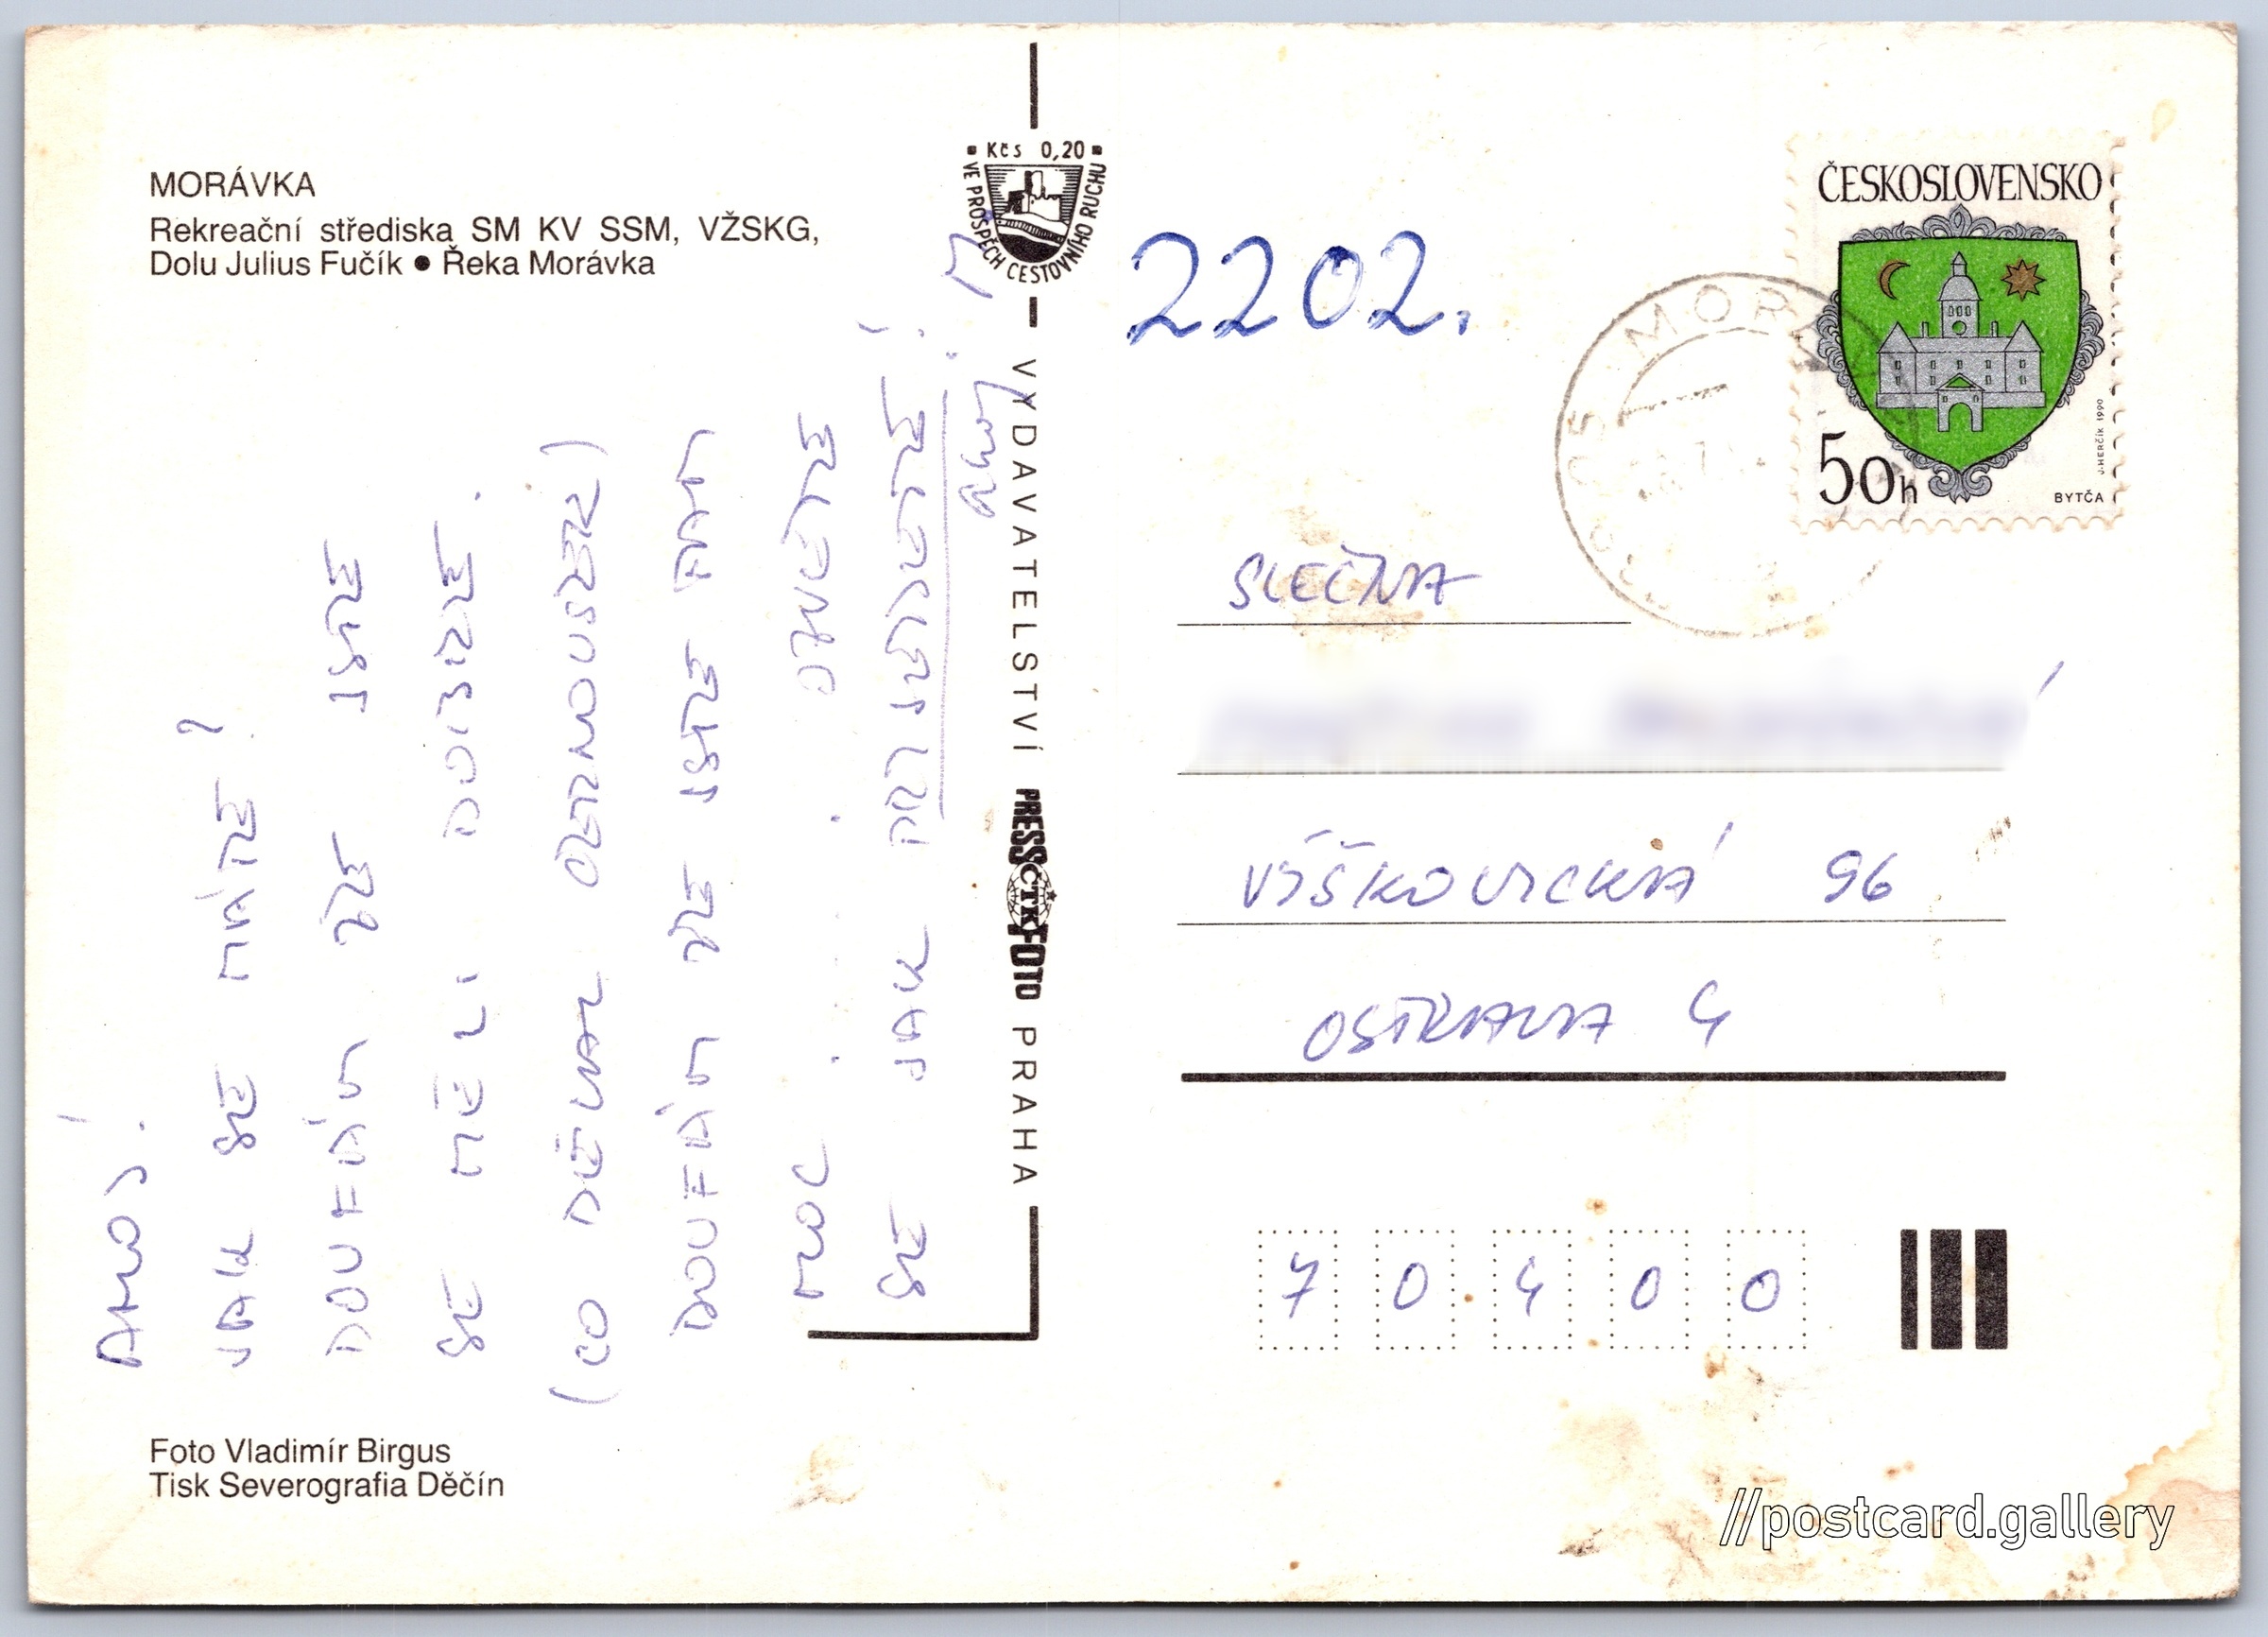 MORÁVKA
Rekreační střediska SM KV SSM, VŽSKG,
Dolu Julius Fučík ● Řeka Morávka
AHOJ!
JAK SE MÁTE?
DOUFÁM ŽE JSTE
SE MĚLI DOBŘE.
(CO DĚLAL OLZMOUSREK)
DOUFÁM ŽE JSTE TAM
MOC
SE JAK
Ahoj!
Foto Vladimír Birgus
Tisk Severografia Děčín
Kčs 0,20
VE PROSPĚCH CESTOVNÍHO RUCHU
VYDAVATELSTVÍ PRESSFOTO PRAHA
ČTK
2202.
ČESKOSLOVENSKO
50h
BYTČA
J.HERČÍK 1990
MOR
SLEČNA
VÝŠKOVICKÁ 96
OSTRAVA 4
70400
//postcard.gallery